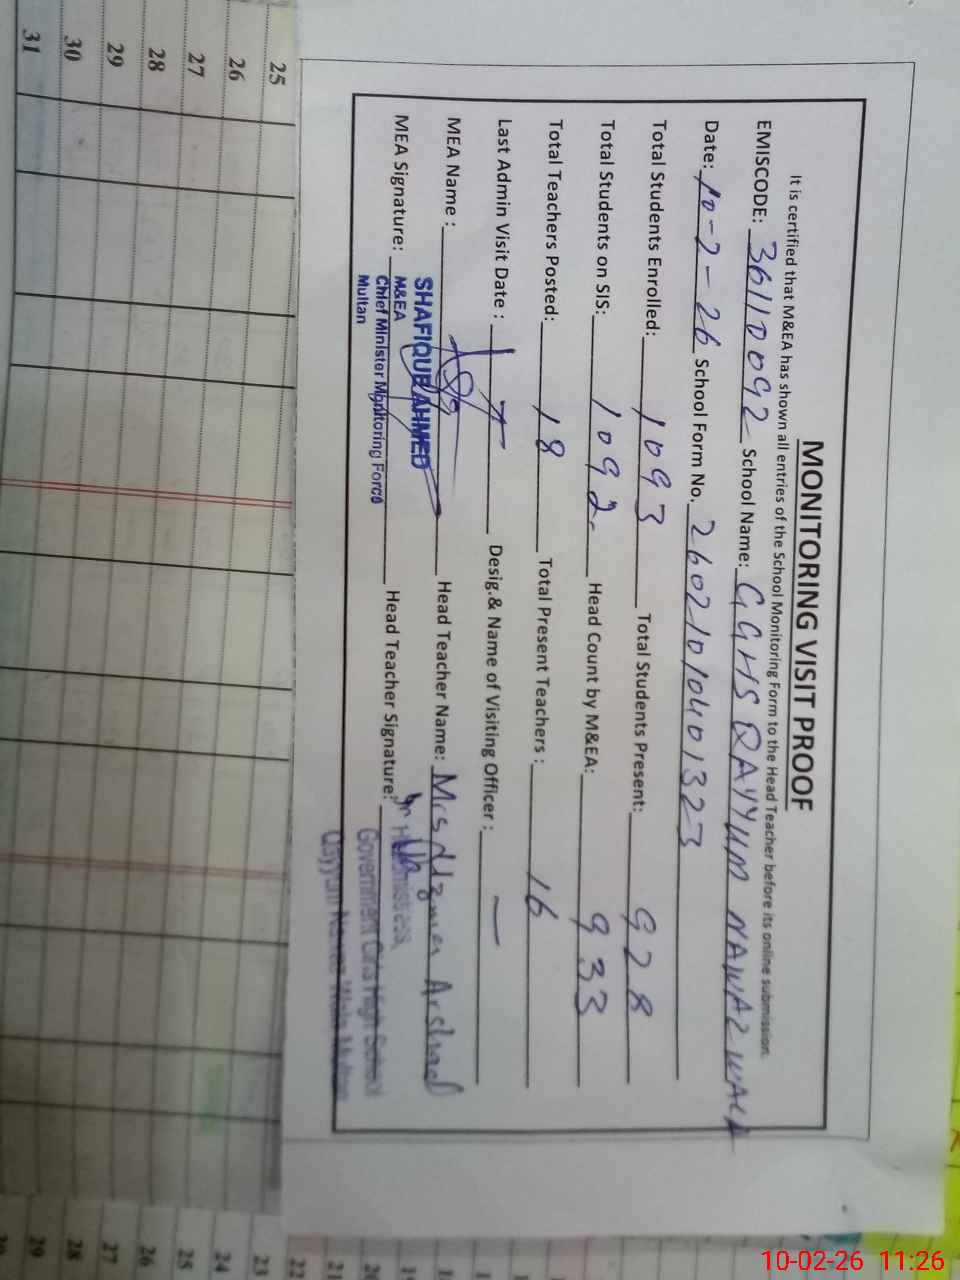 MONITORING VISIT PROOF
It is certified that M&EA has shown all entries of the School Monitoring Form to the Head Teacher before its online submission.
EMISCODE: 36110092 School Name: GGHS QAYYUM NAWAZ WALA
Date: 10-2-26 School Form No. 26021010401323
Total Students Enrolled: 1093 Total Students Present: 928
Total Students on SIS: 1092 Head Count by M&EA: 933
Total Teachers Posted: 18 Total Present Teachers : 16
Last Admin Visit Date : Desig.& Name of Visiting Officer : —
MEA Name : Head Teacher Name: Mrs Arshad
MEA Signature: Head Teacher Signature:
SHAFIQUE AHMED
M&EA
Chief Minister Monitoring Force
Multan
Sr Headmistress,
Government Girls High School
Qayyum Nawaz Wala Multan
25
26
27
28
29
30
31
21
22
23
24
25
26
27
28
29
10-02-26 11:26